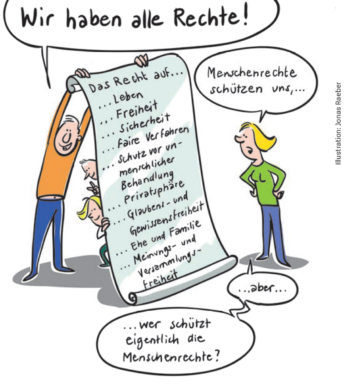 Wir haben alle Rechte!
Das Recht auf...
...Leben
...Freiheit
...Sicherheit
...Faire Verfahren
...Schutz vor un-
menschlicher
Behandlung
...Privatsphäre
...Glaubens- und
Gewissensfreiheit
...Ehe und Familie
...Meinungs- und
Versammlungs-
freiheit
Menschenrechte
schützen uns,...
...aber...
...wer schützt
eigentlich die
Menschenrechte?
Illustration: Jonas Raeber